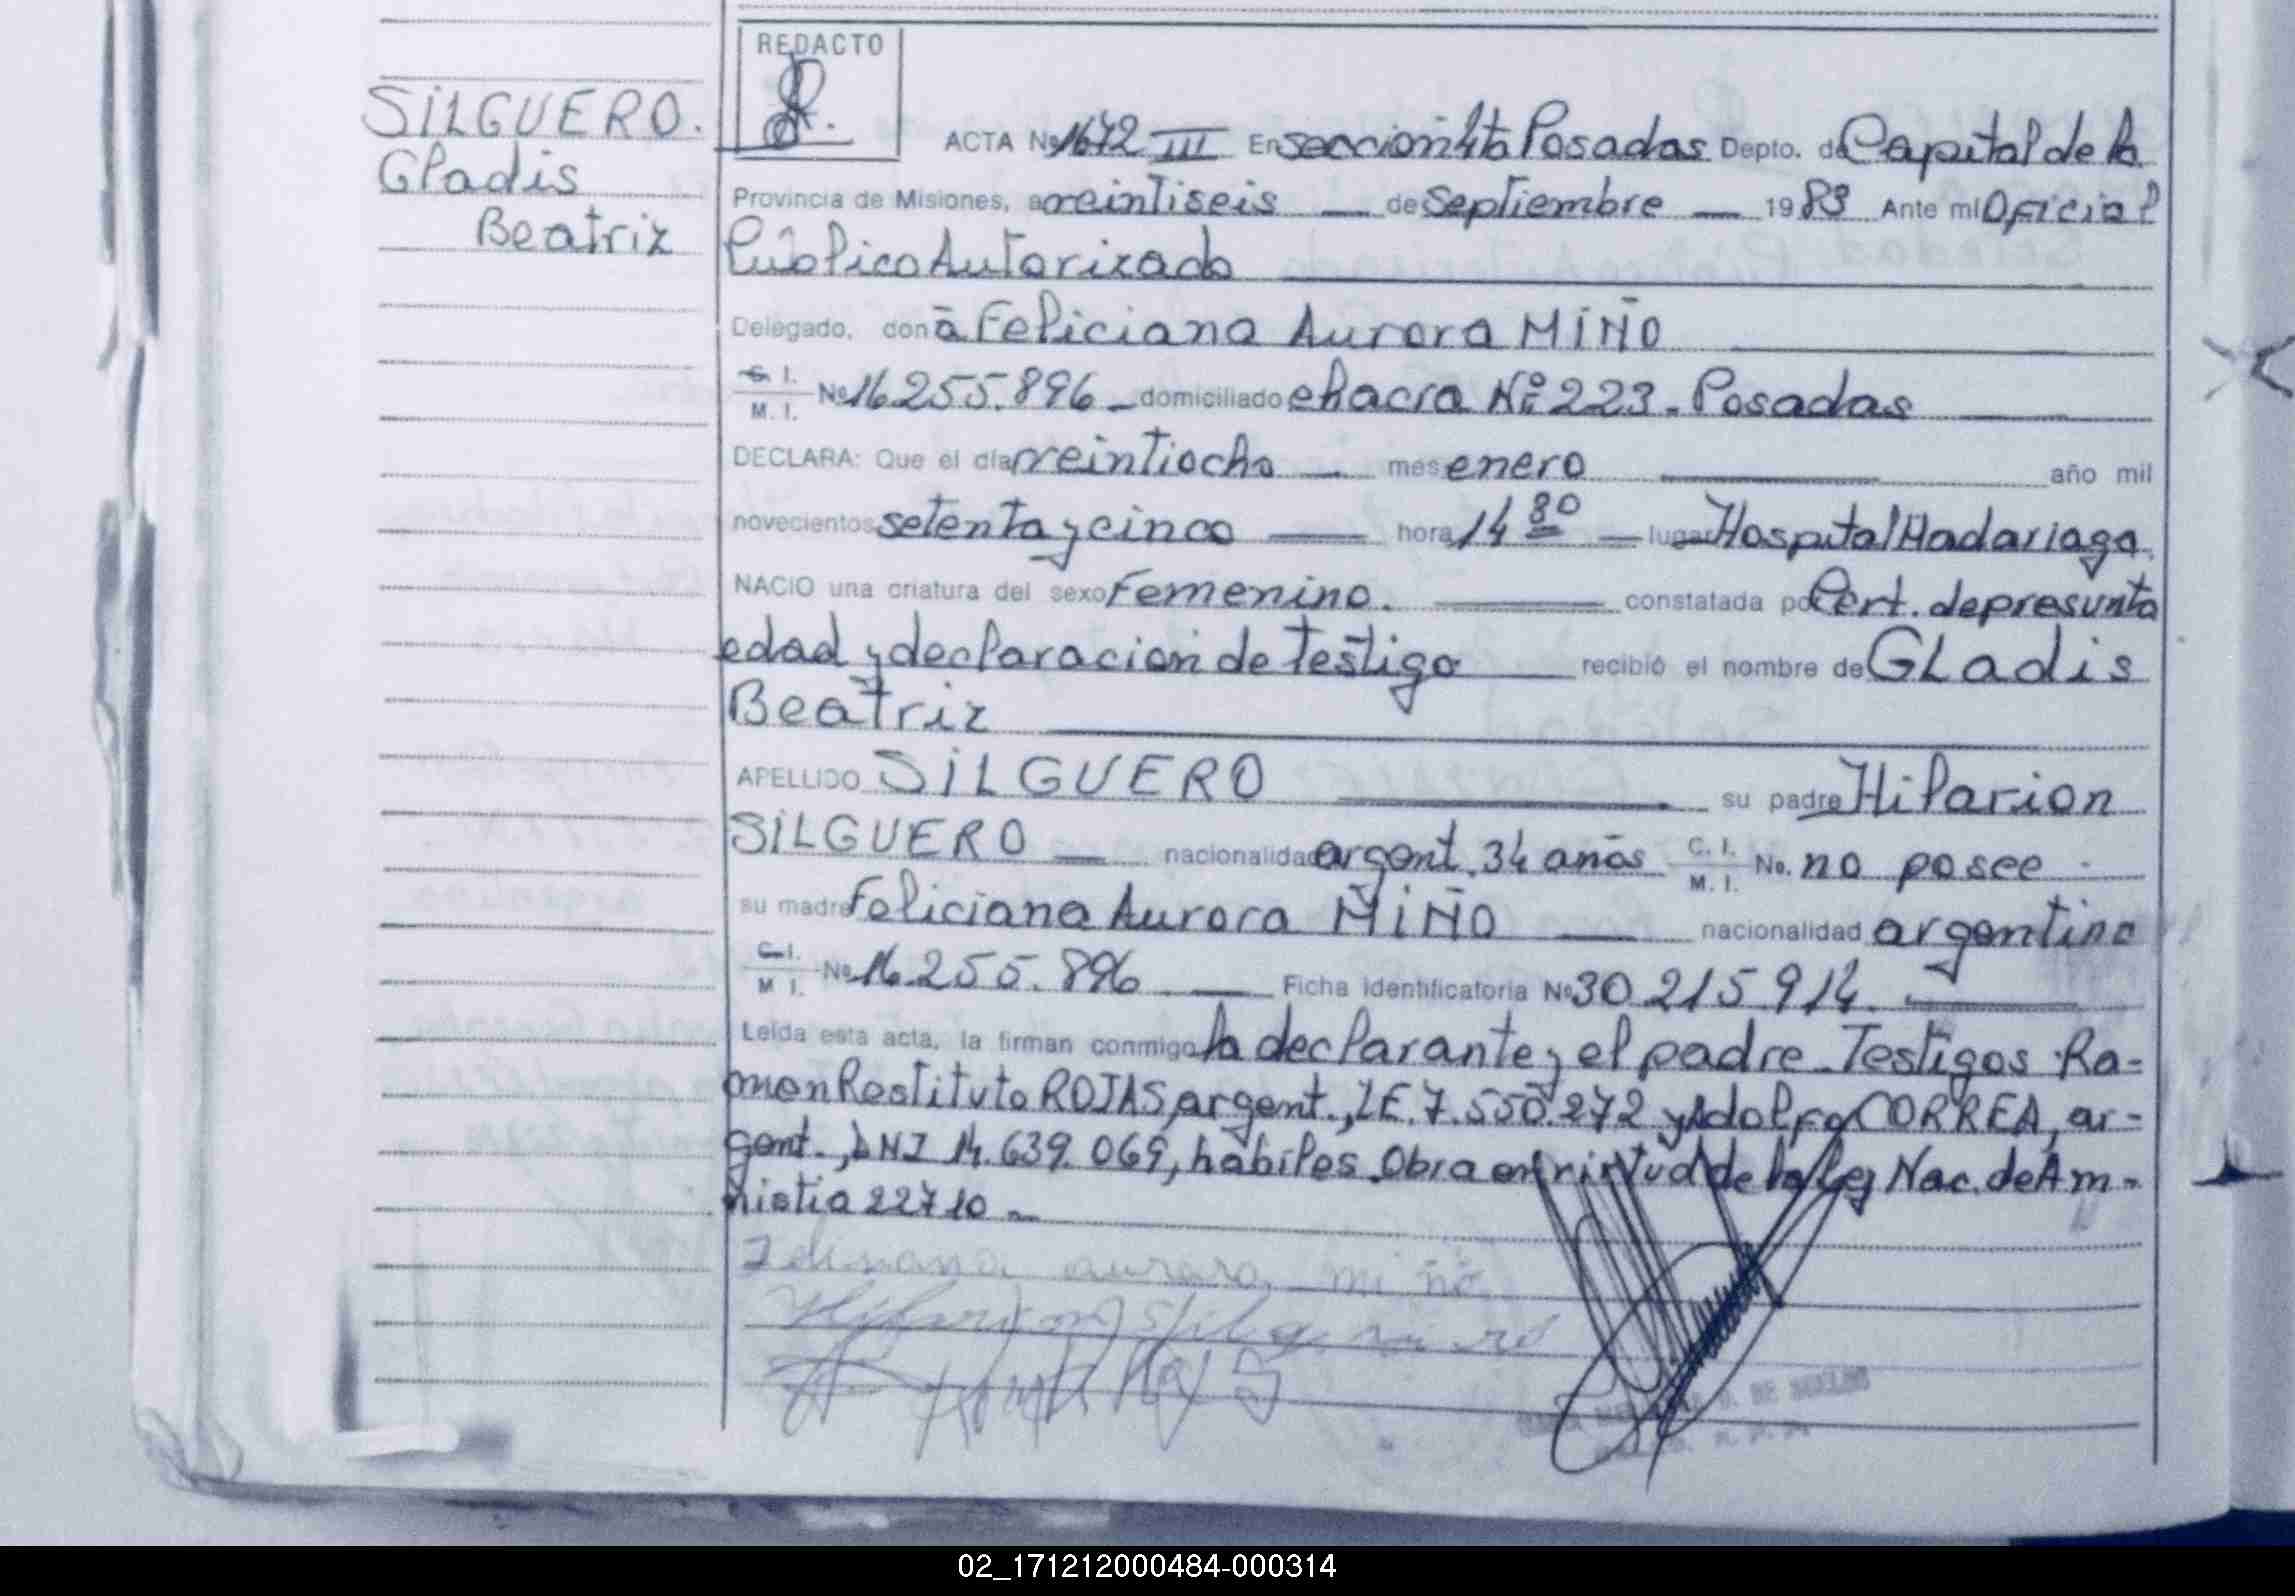 SILGUERO.
Gladis
Beatriz
REDACTO
ACTA No 1672 III En seccion 4ta Posadas Depto. de Capital de la
Provincia de Misiones, a veintiseis — de Septiembre — 1983 Ante mi Oficial
Público Autorizado
Delegado, don ā Feliciana Aurora MIÑO
C. I. M. I. No 16.255.896 - domiciliado chacra Nº 223 - Posadas
DECLARA: Que el día veintiocho — mes enero — año mil
novecientos setenta y cinco — hora 14 30 — lugar Hospital Madariaga.
NACIO una criatura del sexo Femenino. — constatada por Cert. de presunta
edad y declaracion de testigo — recibió el nombre de GLadis
Beatriz
APELLIDO SILGUERO — su padre Hilarion
SILGUERO — nacionalidad argent. 34 años C. I. M. I. No. no posee -
su madre Feliciana Aurora MIÑO — nacionalidad argentina
C. I. M I. No 16.255.896 — Ficha identificatoria No 30 215 914. —
Leída esta acta, la firman conmigo la declarante y el padre - Testigos: Ra-
mon Restituto ROJAS, argent., LE. 7.550.272 y Adolfo CORREA, ar-
gent., DNI 14.639.069, hábiles. Obra en virtud de la Ley Nac. de Am-
nistia 22710 -
aurora miño
02_171212000484-000314